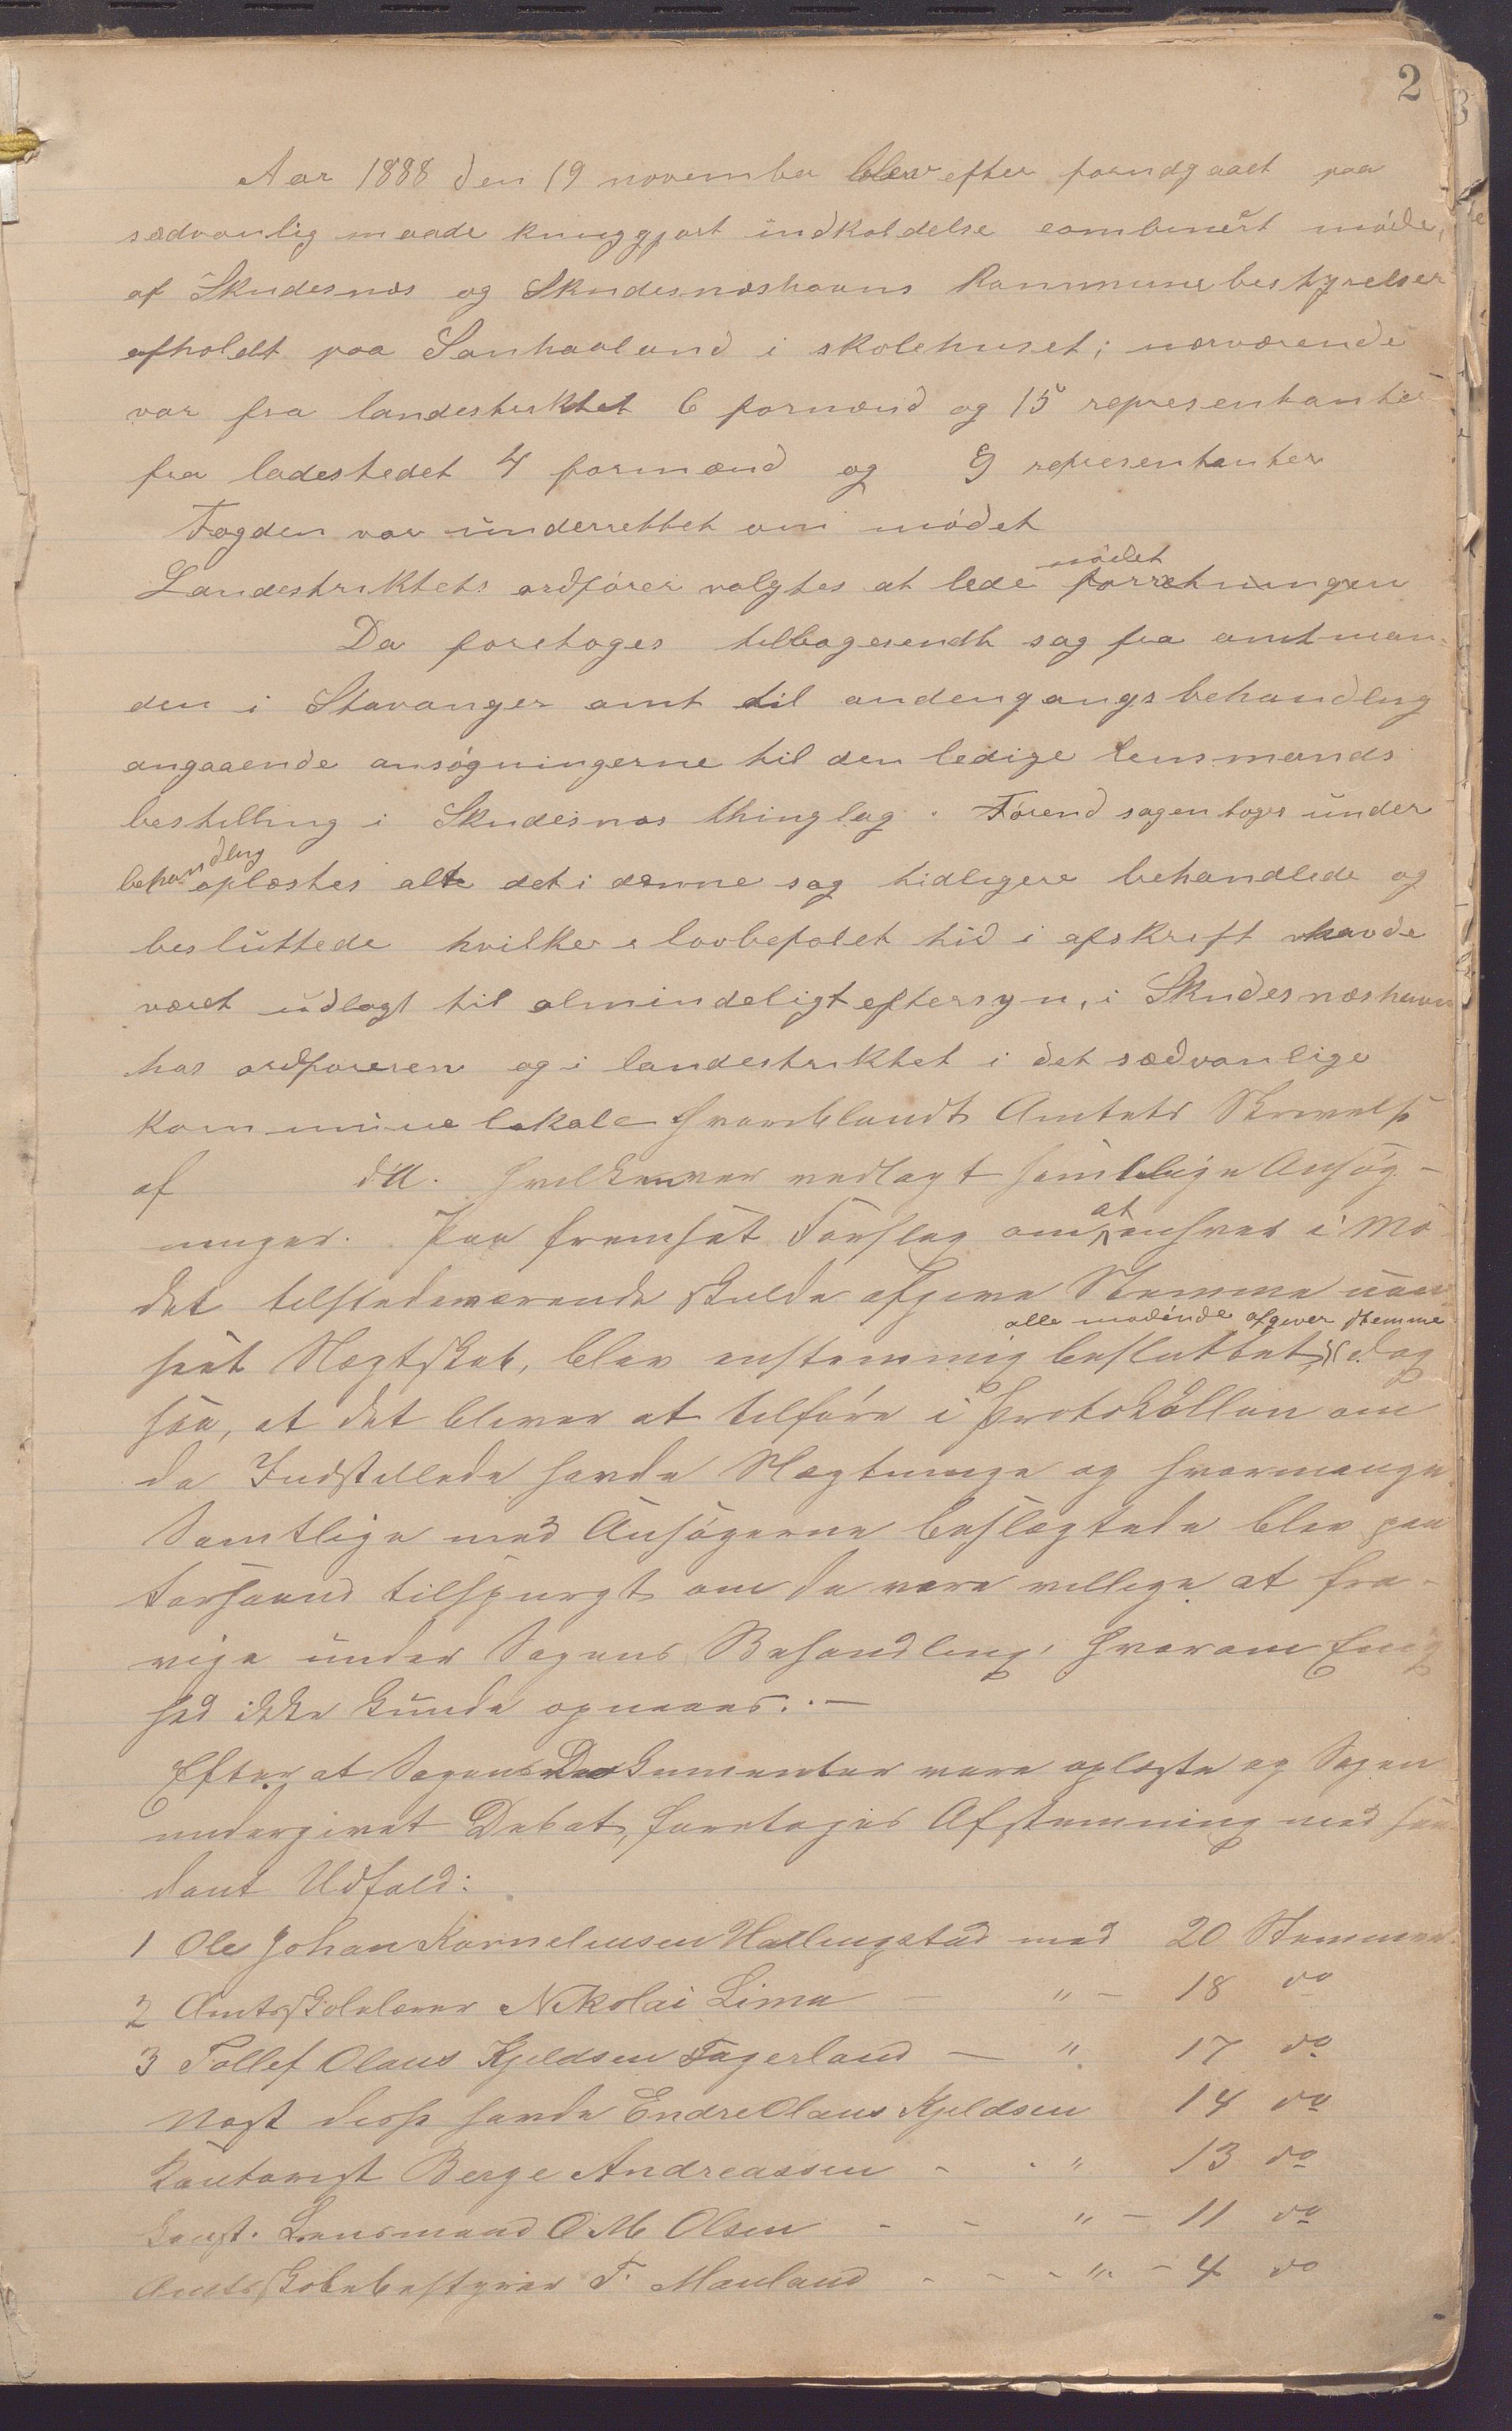 2
Aar 1888 den 19 november blev efter forudgaaet paa
sædvanlig maade kunggjort indkaldelse combineret møde,
af Skudesnæs og Skudesnæshavns Kommunebestyrelser
afholdt paa Sanhaaland i skolehuset; nærværende
var fra landestriktet 6 formænd og 15 representanter
fra ladestedet 4 formænd og 9 representanter
Fogden var underrettet om mødet
Landestriktets ordfører valgtes at lede mødet forretningen
Da foretoges tilbagesendt sag fra amtman-
den i Stavanger amt til andengangsbehandling
angaaende ansøgningerne til den ledige lensmands
bestilling i Skudesnæs thinglag. Førend sagen toges under
behandling oplæstes alt det i denne sag tidligere behandlede og
besluttede hvilke lovbefalet tid i afskrift havde
været udlagt til almindeligt eftersyn, i Skudesnæshavn
hos ordføreren og i landestriktet i det sædvanlige
kommune lokale hvoriblandt Amtets Skrivelse
af d.M. hvilken var vedlagt samtlige Ansøg-
ninger. Paa fremsat Forslag om at enhver i Mø
det tilstedeværende skulde afgive Stemme uan
seet Slægtskab, blev enstemmig besluttet alle mødende afgiver stemme dog
saa, at det bliver at tilføre i Protokollen om
de Indstillede havde Slægtninge og hvormange
Samtlige med Ansøgerne beslægtede blev paa
Forhaand tilspurgt om de vare villige at fra-
vige under Sagens Behandling, hvorom Enig
hed ikke kunde opnaaes. –
Efter at Sagens Dokumenter vare oplæste og Sagen
undergivet Debat, foretoges Afstemning med saa
dant Udfald:
1 Ole Johan Korneliussen Hallingstad med 20 Stemmer
2 Amtsskolelærer Nikolai Lima – " – 18 do
3 Tollef Olaus Kjeldsen Fagerland – " 17 do
Næst disse havde Endre Olaus Kjeldsen 14 do
Kontorist Berge Andreassen - - " 13 do
Const. Lensmand O M Olsen - - " – 11 do
Amtsskolebestyrer T. Mauland - - - " – 4 do